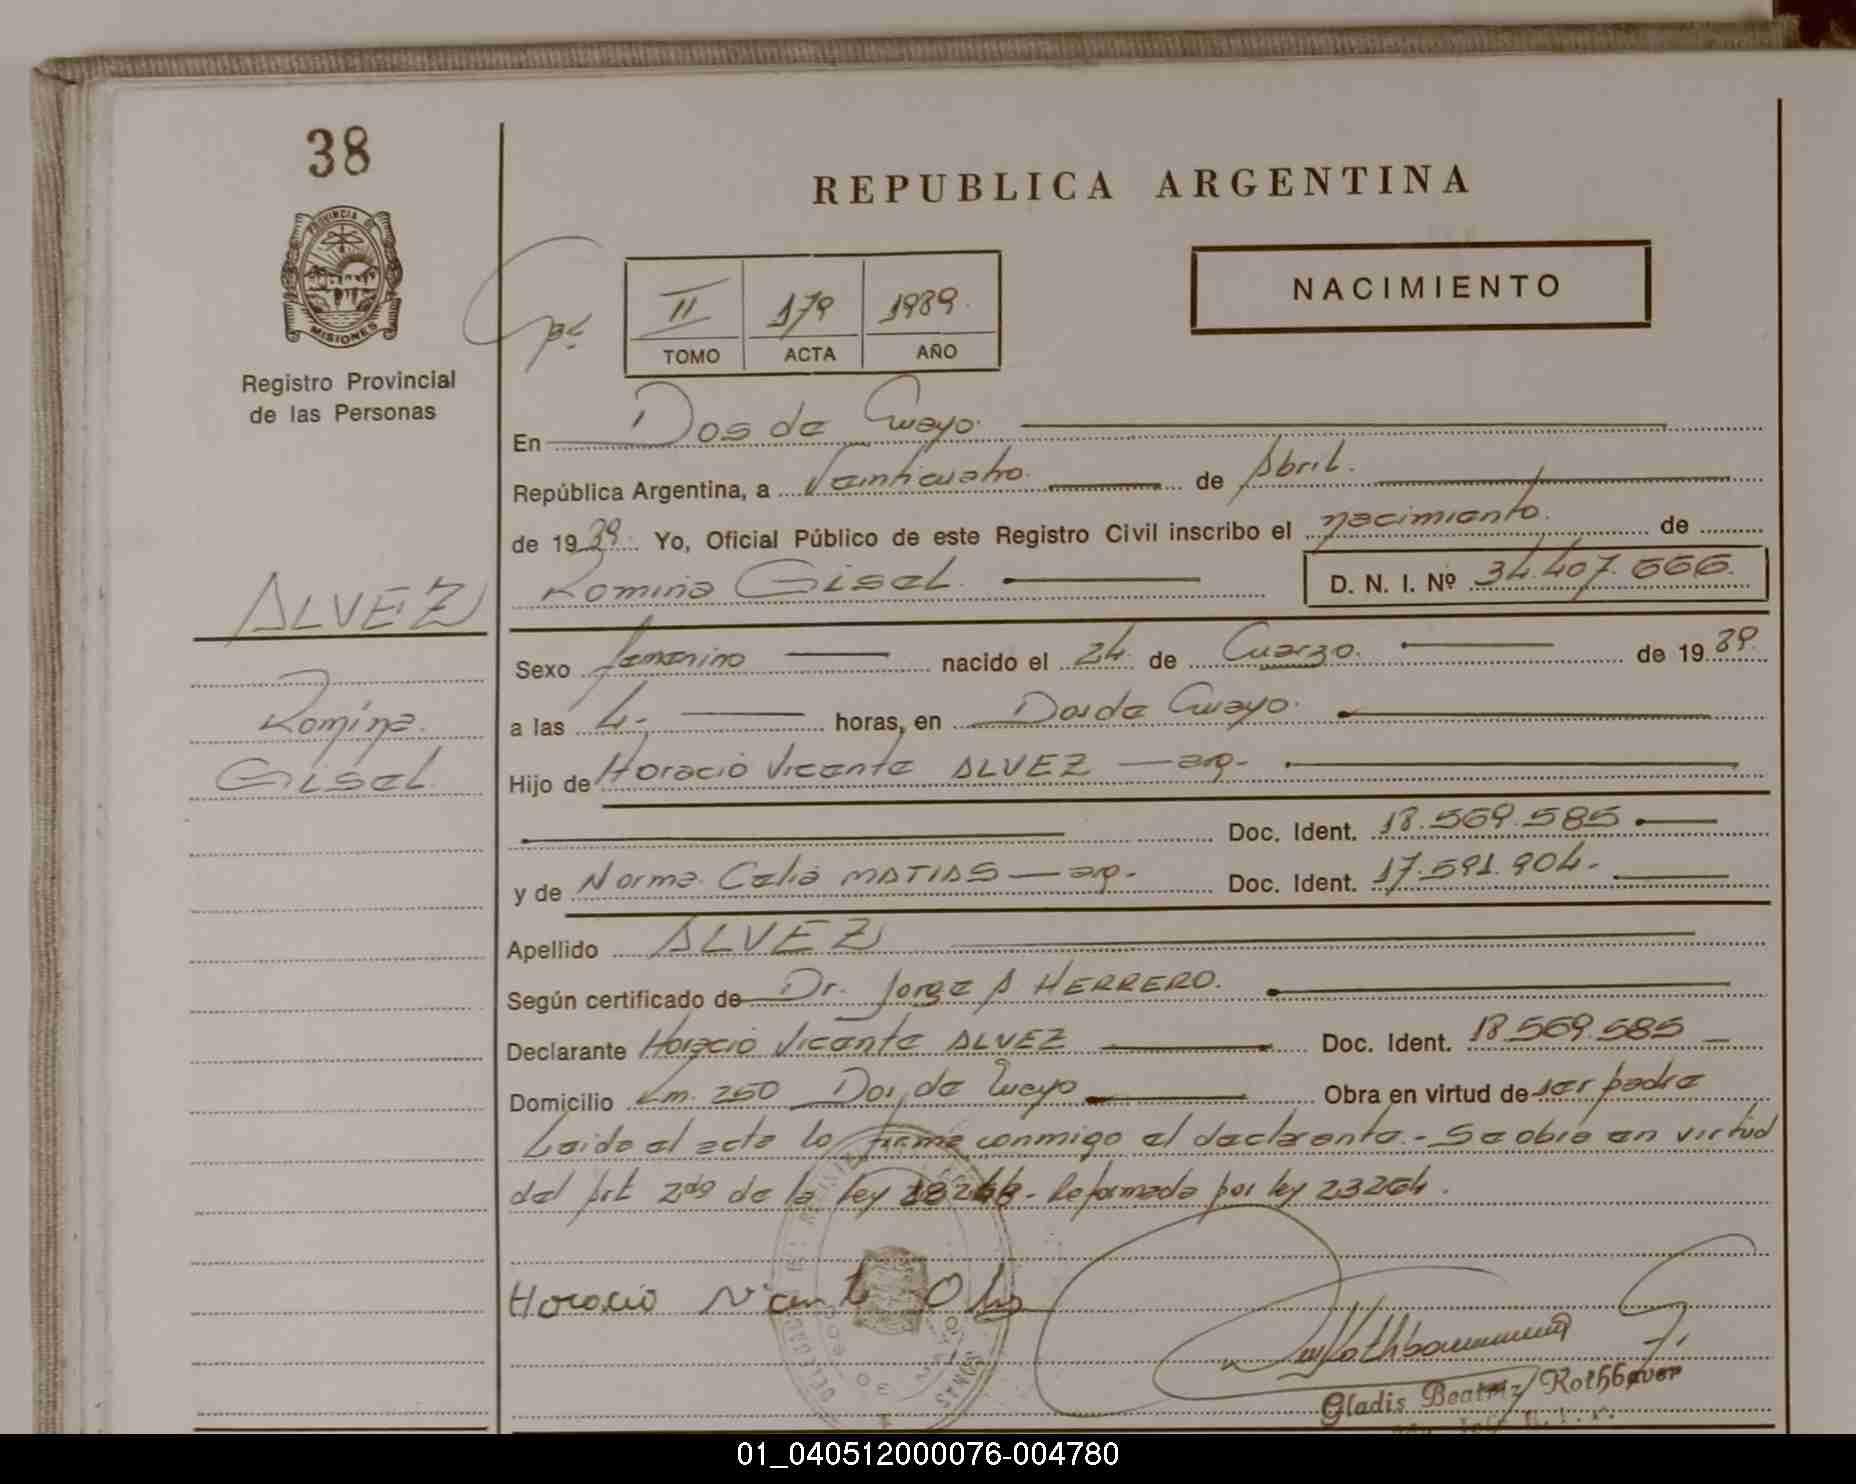 38
PROVINCIA DE
MISIONES
Registro Provincial
de las Personas
REPUBLICA ARGENTINA
II 179 1989
TOMO ACTA AÑO
NACIMIENTO
En Dos de Mayo
República Argentina, a Veinticuatro de Abril.
de 1989 Yo, Oficial Público de este Registro Civil inscribo el nacimiento. de
Romina Gisel D. N. I. Nº 34.407.666.
ALVEZ
Romina
Gisel
Sexo femenino nacido el 24 de Marzo. de 1989.
a las 4. horas, en Dos de Mayo.
Hijo de Horacio Vicente ALVEZ — arg.
Doc. Ident. 18.569.585
y de Norma Celia MATIAS — arg. Doc. Ident. 17.591.904.
Apellido ALVEZ
Según certificado de Dr. Jorge A HERRERO.
Declarante Horacio Vicente ALVEZ Doc. Ident. 18.569.585
Domicilio Km. 250 Dos de Mayo Obra en virtud de ser padre
Leida el acta lo firma conmigo el declarante. - Se obra en virtud
del Art 2do de la ley 18248 - Reformada por ley 23264.
Horacio Vicente
Gladis Beatriz Rothbauer
01_040512000076-004780